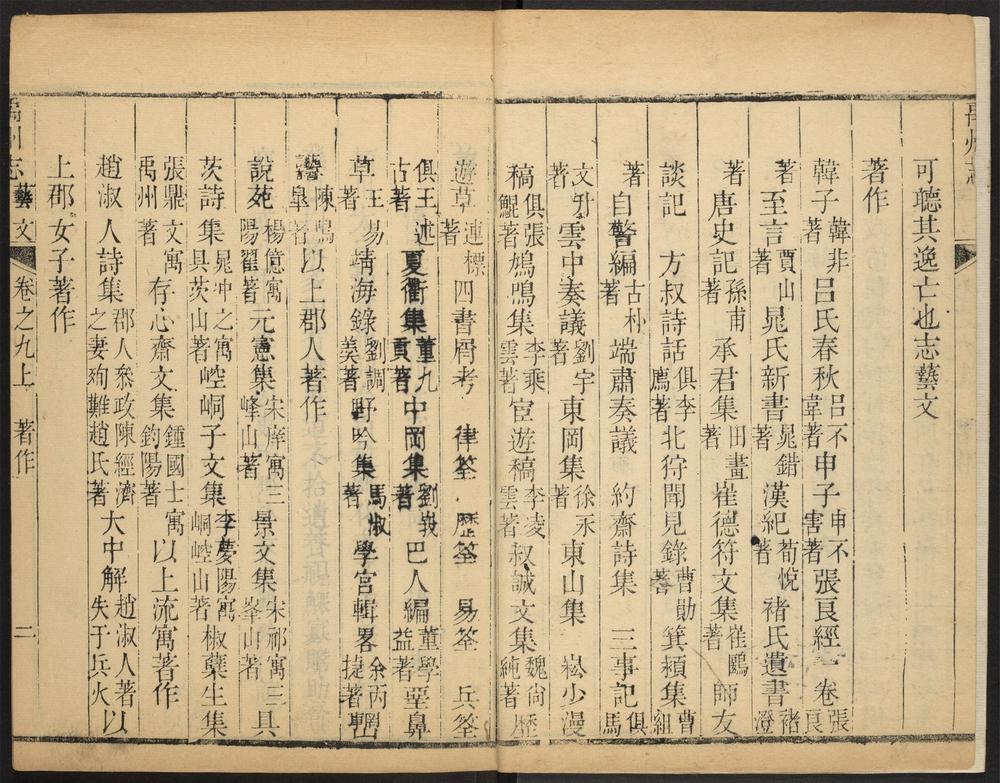 可聽其逸亡也志藝文
著作
韓子韓非著呂氏春秋呂不韋著申子申不害著張良經一卷張良
著至言賈山著晁氏新書晁錯著漢紀荀悅著褚氏遺書褚澄
著唐史記孫甫著承君集田晝著崔德符文集崔鷗著師友
談記方叔詩話俱李廌著北狩聞見錄曹勛著箕潁集曹組
著自警編古朴著端肅奏議約齋詩集三事記俱馬
文升著雲中奏議劉宇著東岡集徐永著東山集崧少漫
稿俱張鯤著鳩鳴集李乘雲著宦遊稿李凌雲著叔誠文集魏尚純著歷
遊草連標著四書屑考律筌歷筌易筌兵筌
俱王述古著夏衢集董九貢著中岡集劉峩著巴人編董學益著堊鼻
草王易著靖海錄劉調羹著野吟集馬淑著學宮輯畧余丙捷著
陳鳴皋著以上郡人著作
說苑楊億寓陽翟著元憲集宋庠寓三峰山著景文集宋祁寓三峯山著具
茨詩集晁冲之寓具茨山著崆峒子文集李慶陽寓峒崆山著椒蘗生集
張鼎文寓禹州著存心齋文集鍾國士寓鈞陽著以上流寓著作
趙淑人詩集郡人叅政陳經濟之妻殉難趙氏著大中解趙淑人著以失于兵火
上郡女子著作
禹州志藝文卷之九上著作二